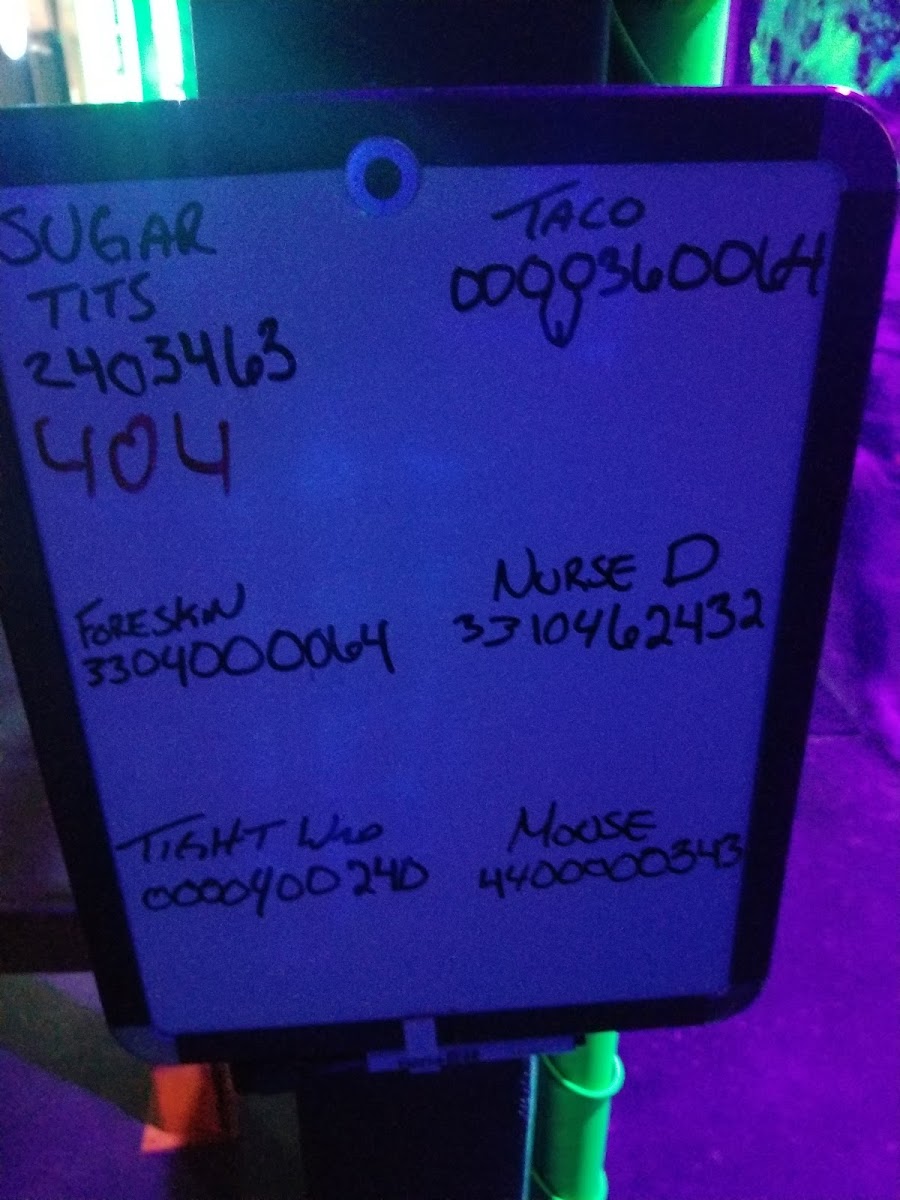 SUGAR
TITS
2403463
404
TACO
0099360064
FORESKIN
3304000064
NURSE D
3310462432
TIGHT WAD
0000400240
MOUSE
4400000343